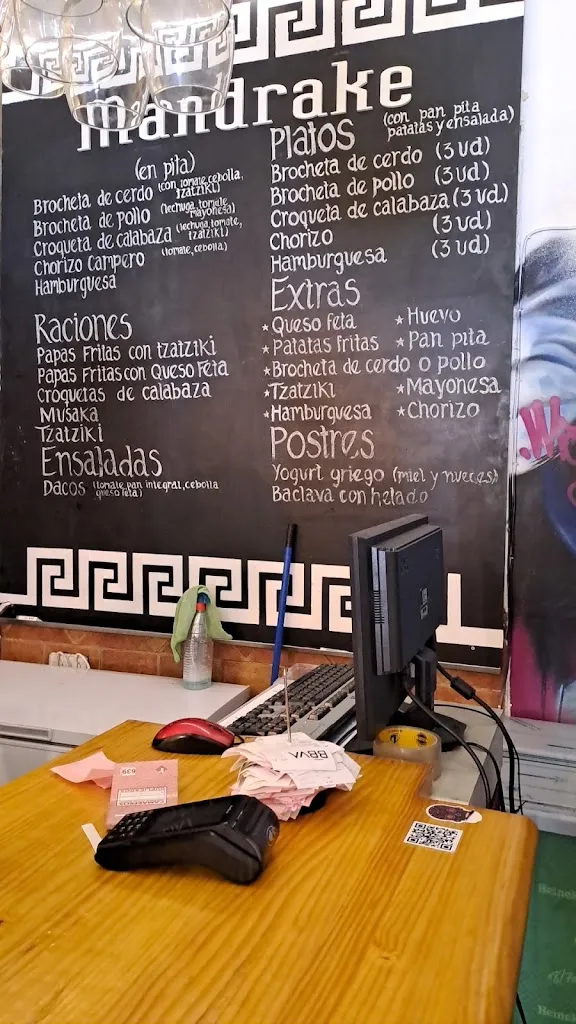 mandrake
(en pita)
Brocheta de cerdo (con tomate, cebolla, tzatziki)
Brocheta de pollo (lechuga, tomate, mayonesa)
Croqueta de calabaza (lechuga, tomate, tzatziki)
Chorizo Campero (tomate, cebolla)
Hamburguesa
Raciones
Papas Fritas con tzatziki
Papas Fritas con Queso Feta
Croquetas de calabaza
Musaka
Tzatziki
Ensaladas
Dacos (tomate, pan integral, cebolla queso feta)
Platos (con pan pita patatas y ensalada)
Brocheta de cerdo (3 ud)
Brocheta de pollo (3 ud)
Croqueta de calabaza (3 ud)
Chorizo (3 ud)
Hamburguesa (3 ud)
Extras
★Queso feta ★Huevo
★Patatas fritas ★Pan pita
★Brocheta de cerdo o pollo
★Tzatziki ★Mayonesa
★Hamburguesa ★Chorizo
Postres
Yogurt griego (miel y nueces)
Baclava con helado
BBVA
639
Heineken